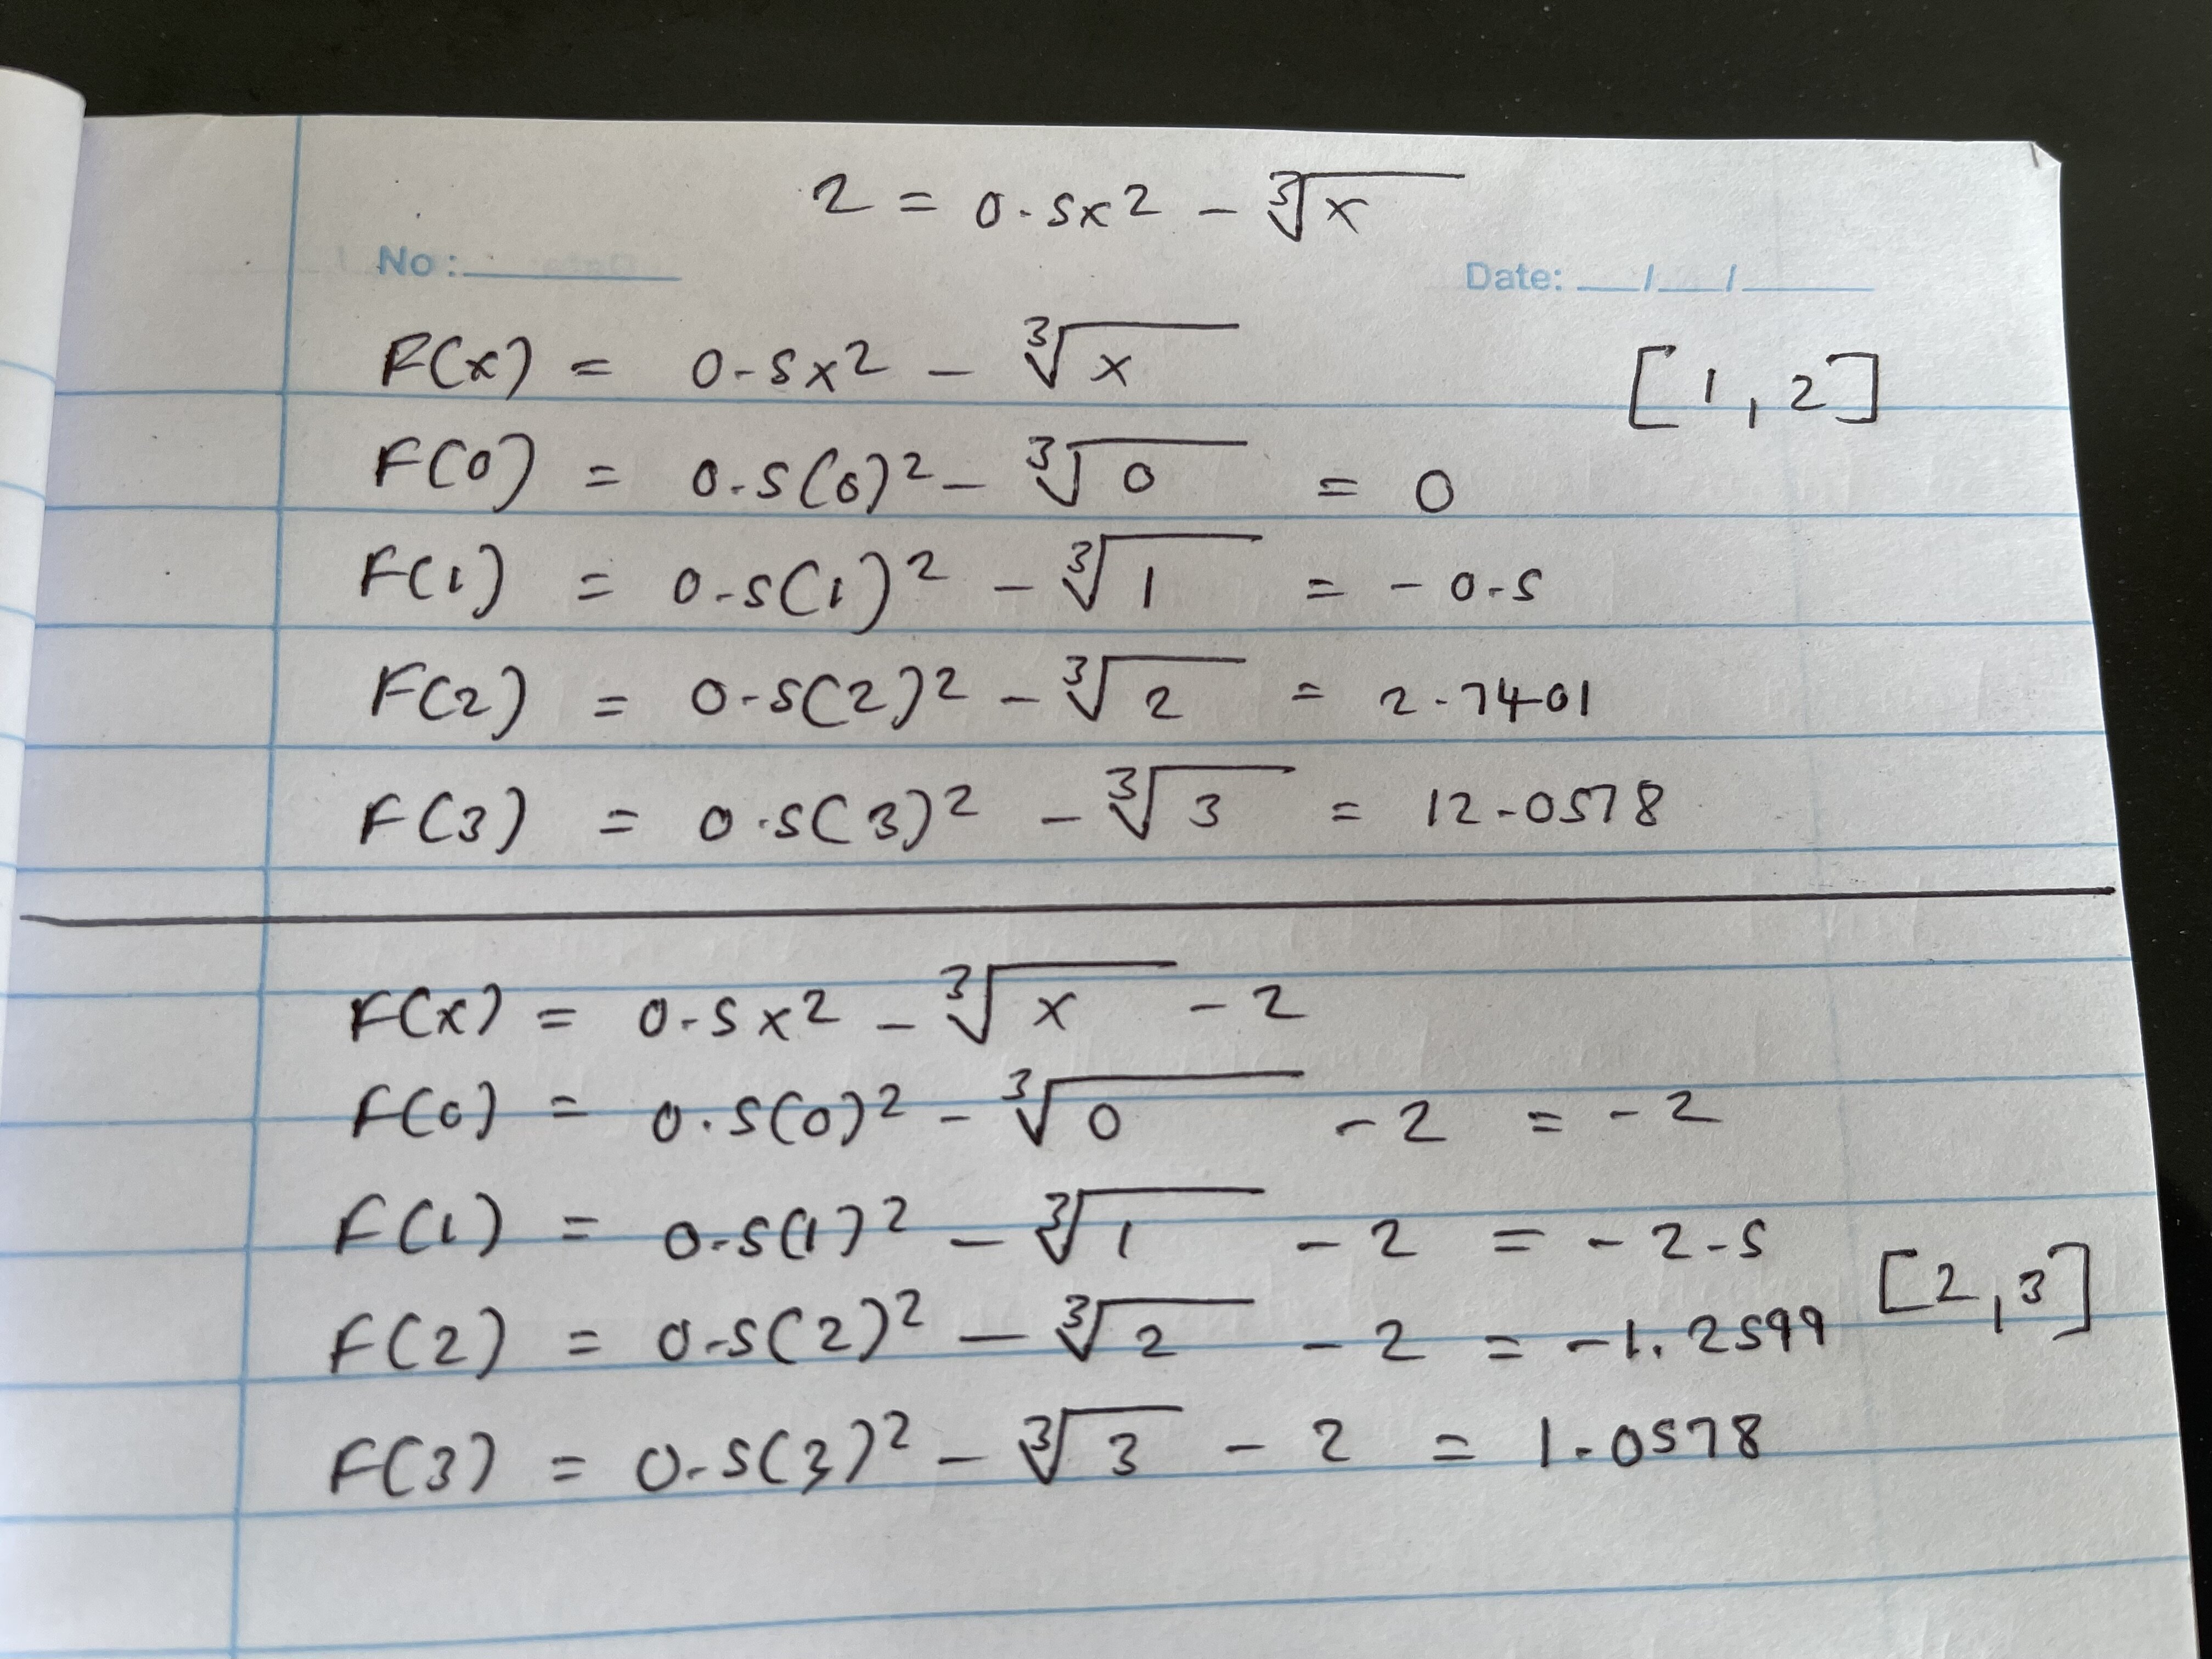 2 = 0.5x2 - ∛x
No: Date: / /
F(x) = 0.5x2 - ∛x [1,2]
F(0) = 0.5(0)² - ∛0 = 0
F(1) = 0.5(1)² - ∛1 = -0.5
F(2) = 0.5(2)² - ∛2 = 2.7401
F(3) = 0.5(3)² - ∛3 = 12.0578
F(x) = 0.5x2 - ∛x - 2
F(0) = 0.5(0)² - ∛0 - 2 = -2
F(1) = 0.5(1)² - ∛1 - 2 = -2.5
F(2) = 0.5(2)² - ∛2 - 2 = -1.2599 [2,3]
F(3) = 0.5(3)² - ∛3 - 2 = 1.0578